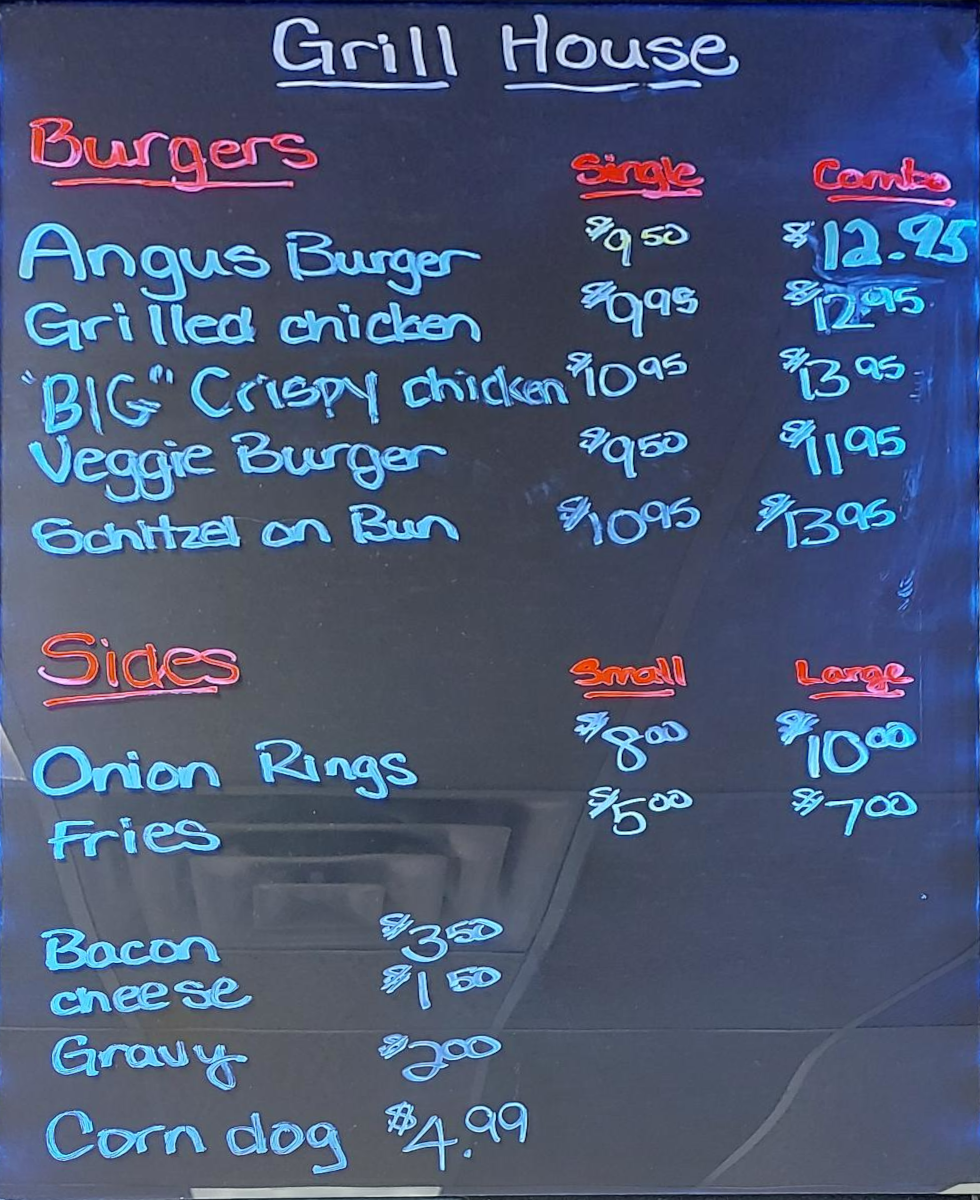 Grill House
Burgers Single Combo
Angus Burger $9.50 $12.95
Grilled chicken $9.95 $12.95
"BIG" Crispy chicken $10.95 $13.95
Veggie Burger $9.50 $11.95
Schitzel on Bun $10.95 $13.95
Sides Small Large
Onion Rings $8.00 $10.00
Fries $5.00 $7.00
Bacon $3.50
cheese $1.50
Gravy $2.00
Corn dog $4.99